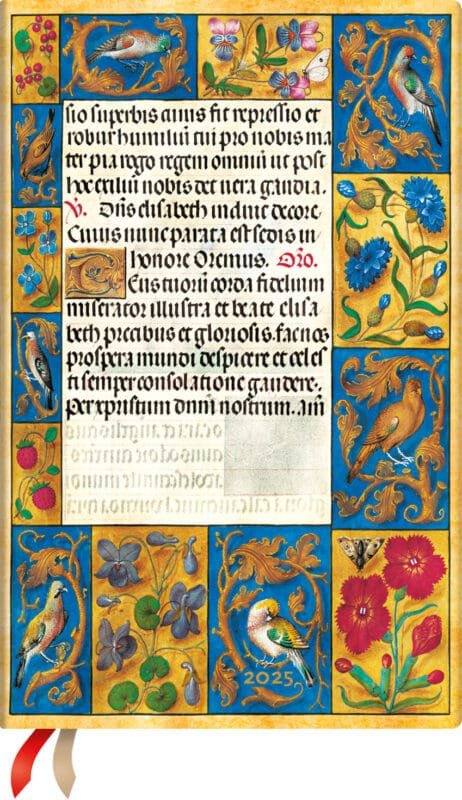 sio superbis cuius fit repressio et
robur humiliū cui pro nobis ma
ter pia rogo regem omniū ut post
hoc exiliū nobis det uera gaudia.
V. Dñs elisabeth induit decore.
Cuius nunc parata est sedis in
honore Oremus. Oro.
Deus tuorū corda fidelium
miserator illustra et beate elisa
beth precibus et gloriosis. fac nos
prospera mundi despicere et celes
ti semper consolatione gaudere.
Per xpristum dnm nostrum. am
2025